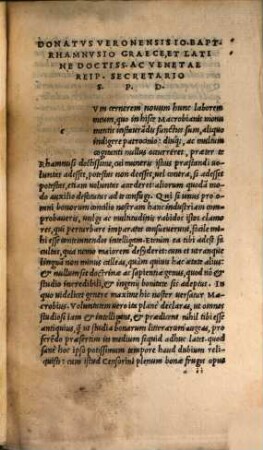 DONATVS VERONENSIS IO.BAPT.
RHAMNVSIO GRAECE, ET LATI
NE DOCTISS. AC VENETAE
REIP. SECRETARIO
S. P. D.
Vm cernerem nouum hunc laborem
meum, quo in hisce Macrobianis monu
mentis instaurãdis functus sum, aliquo
c indigere patrocinio: diuq; ac multum
cogitanti nullus occurreret, præter te
Rhamnusi doctissime, cui muneris istius præstandi uo
luntas adesset, potestas non deesset, uel contra, si adesset
potestas, etiam uoluntas anderet: aliorum quodã mo
do auxilio destitutus ad te confugi. Qui si unus pronomi
ni bonorum omniũ nostram hanc industriam com
probaueris, nec multitudinis rabidos istos clamo
res, qui perturbare imparatos assueuerunt, facile mihi
esse contemnendos intelligem. Etenim ea tibi adest fa
cultas, qua nemo maiorem desyderet: cum et uerunque
lingua non minus calleas, quàm quiuis hac ætate alius:
& nullum sit doctrinæ ac sapientiæ genus, quod nõ stu
dio incredibili, & ingenij bonitate sis adeptus. In
quo uidelicet genere maxime hic noster uersatur Ma
crobius. Voluntatem uero ita planè declaras, ut omnes
studiosi iam & intelligant, & prædicent nihil tibi esse
antiquius, q̃ ut studia bonarum litterarum augeas, pro
ferẽdo præsertim in medium siquid adhuc latet. quod
sanè hoc ipso potissimum tempore haud dubium reli
quisti: cum istud Censorini plenum bonæ frugis opus
a ii